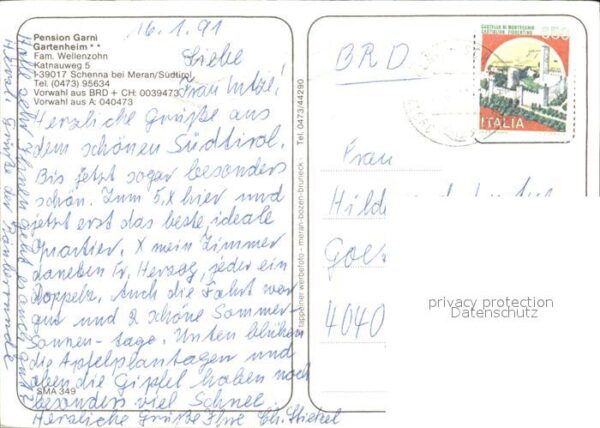 16.1.91
Pension Garni
Gartenheim **
Fam. Wellenzohn
Katnauweg 5
I-39017 Schenna bei Meran/Südtirol
Tel. (0473) 95634
Vorwahl aus BRD + CH: 0039473
Vorwahl aus A: 040473
Liebe
Frau
Herzliche Grüße aus
dem schönen Südtirol.
Bis jetzt sogar besonders
schön. Zum 5.x hier und
jetzt erst das beste, ideale
Quartier. X mein Zimmer
daneben Fr. Herzog, jeder ein
Doppelz. Auch die Fahrt war
gut und 2 schöne Sommer-
Sonnen-tage. Unten blühen
die Apfelplantagen und
oben die Gipfel haben noch
besonders viel Schnee.
Herzliche Grüße Ihre Ch.
SMA 349
Herzl. Grüße der
tappeiner werbefoto - meran-bozen-bruneck - Tel. 0473/44290
CASTELLO DI MONTECCHIO
CASTIGLION FIORENTINO
650
ITALIA
BRD
Frau
Hilde
Goe
4040
privacy protection
Datenschutz